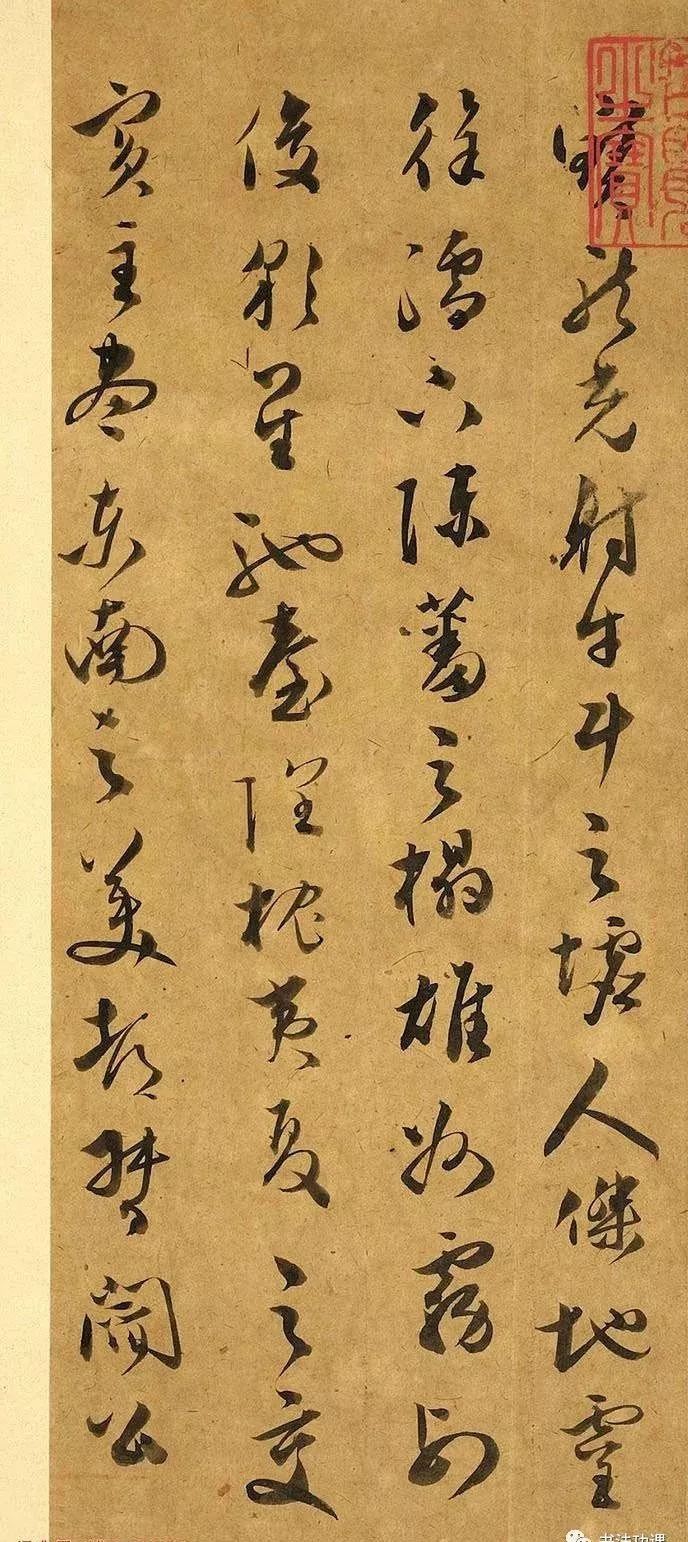 寶龍光射牛斗之墟人傑地靈
徐孺下陳蕃之榻雄州霧列
俊彩星馳臺隍枕夷夏之交
賓主盡東南之美都督閻公
书法功课